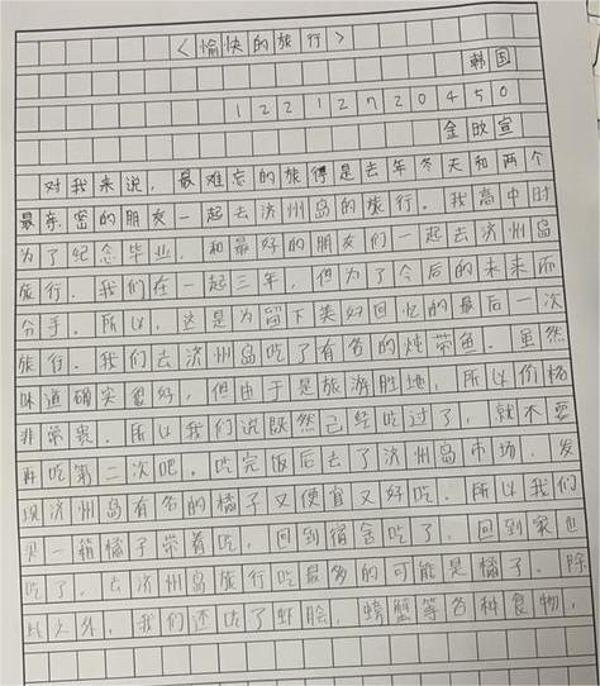 <愉快的旅行>
韩国
12212720450
金旼宣
对我来说，最难忘的旅得是去年冬天和两个
最亲密的朋友一起去济州岛的旅行。我高中时
为了纪念毕业，和最好的朋友们一起去济州岛
旅行。我们在一起三年，但为了今后的未来而
分手。所以，这是为留下美好回忆的最后一次
旅行。我们去济州岛吃了有名的炖带鱼。虽然
味道确实很好，但由于是旅游胜地，所以价格
非常贵。所以我们说既然已经吃过了，就不要
再吃第二次吧。吃完饭后去了济州岛市场，发
现济州岛有名的橘子又便宜又好吃。所以我们
买一箱橘子带着吃，回到宿舍吃了，回到家也
吃了。去济州岛旅行吃最多的可能是橘子。除
此之外，我们还吃了虾脍，螃蟹等各种食物，